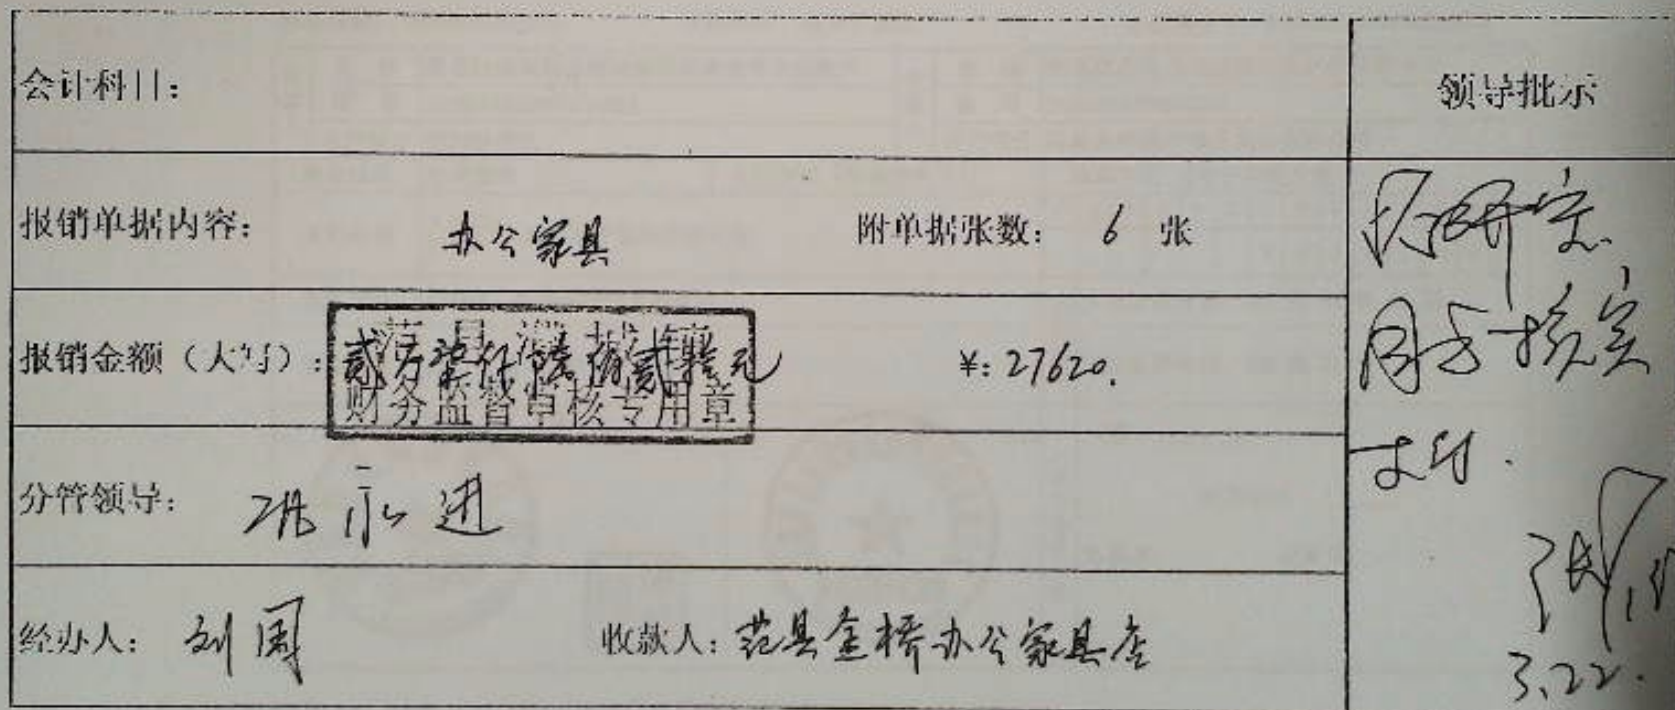 会计科目：
领导批示
报销单据内容： 办公家具 附单据张数： 6 张
报销金额（大写）：贰万柒仟陆佰贰拾元 ¥：27620.
范县濮城镇
财务监督审核专用章
分管领导： 永进
经办人： 刘国 收款人：范县金桥办公家具店
核实
支付.
张
3.22.